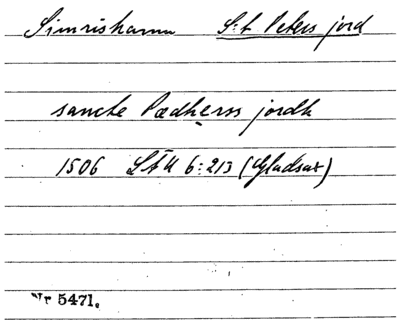 Simrishamn S:t Peters jord
sancte Pædherss jordh
1506 LÄU 6:213 (Gladsax)
Nr 5471.